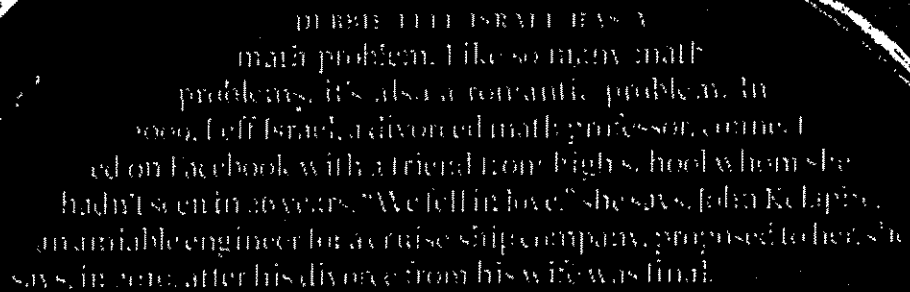 DEBBIE LEFF ISRAEL HAS A
math problem. Like so many math
problems, it's also a romantic problem. In
2009, Leff Israel, a divorced math professor, connect
ed on Facebook with a friend from high school whom she
hadn't seen in 20 years. "We fell in love," she says. John
an amiable engineer for a cruise ship company, proposed to her, she
says, in after his divorce from his wife was final.